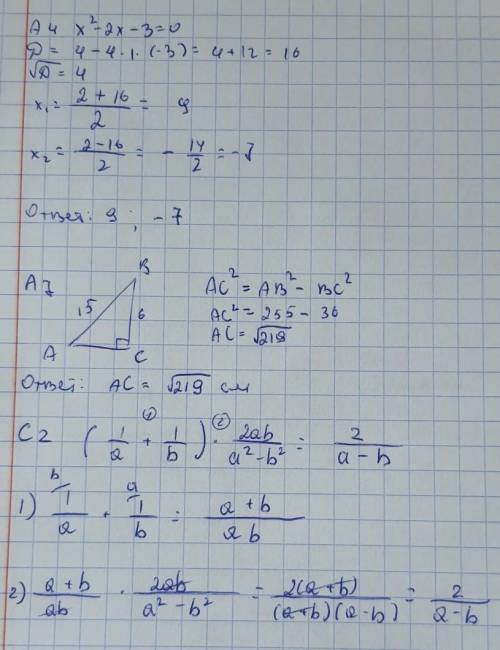 А4 x² - 2x - 3 = 0
D = 4 - 4 · 1 · (-3) = 4 + 12 = 16
√D = 4
x₁ = (2 + 16)/2 = 9
x₂ = (2 - 16)/2 = - 14/2 = -7
Ответ: 9 ; -7
А7
B
15
6
A
C
AC² = AB² - BC²
AC² = 255 - 36
AC = √219
Ответ: AC = √219 см
С2 (1/a + 1/b) · 2ab/(a² - b²) = 2/(a - b)
1
2
b a
1) 1/a + 1/b = (a + b)/ab
2) (a + b)/ab · 2ab/(a² - b²) = 2(a + b)/((a + b)(a - b)) = 2/(a - b)